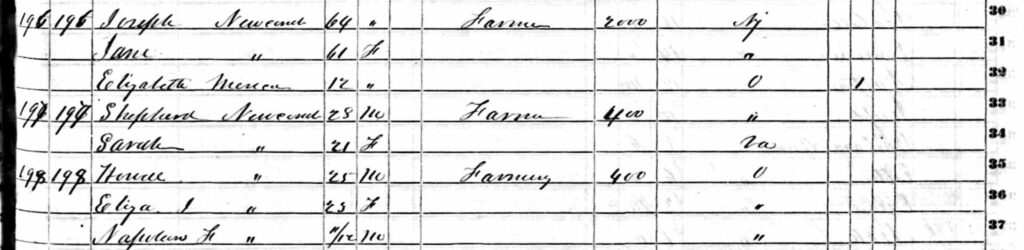 196 196 Joseph Newcomb 64 " Farmer 2000 Nj 30
Jane " 61 F " 31
Elizabeth 12 " O 1 32
197 197 Shepherd Newcomb 28 M Farmer 400 " 33
Sarah " 21 F Va 34
198 198 " 25 M Farming 400 O 35
Eliza J " 23 F " 36
Napoleon F " 11/12 M " 37